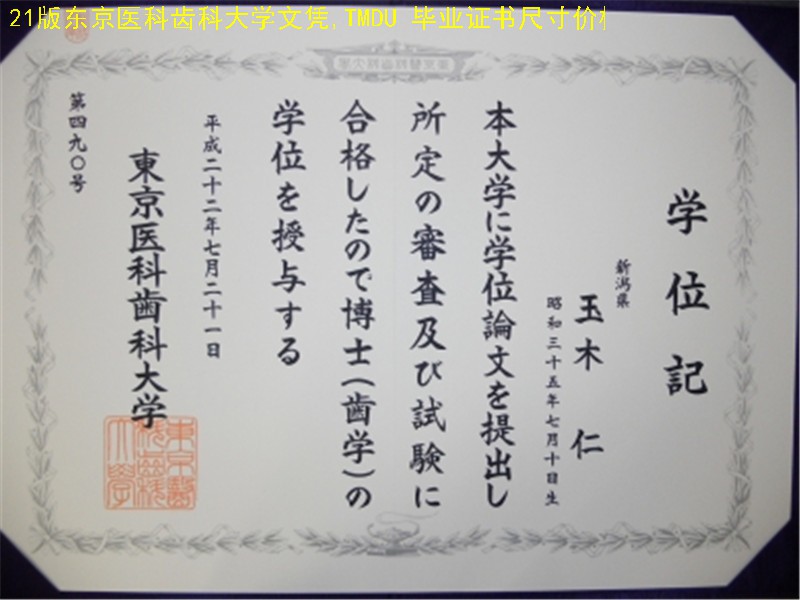 21版东京医科齿科大学文凭,TMDU 毕业证书尺寸价格
学位記
新潟県
玉木 仁
昭和三十五年七月十日生
本大学に学位論文を提出し
所定の審査及び試験に
合格したので博士(歯学)の
学位を授与する
平成二十二年七月二十一日
東京医科歯科大学
第四九〇号